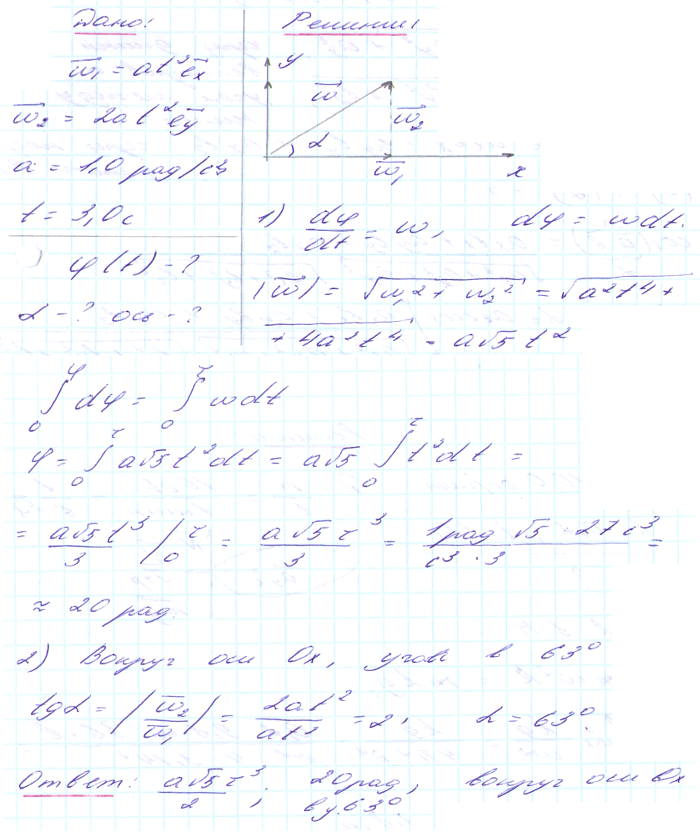 Дано:
w̅₁ = at²e̅x
w̅₂ = 2at²e̅y
a = 1,0 рад/с3
t = 3,0 с
φ(t) - ?
α - ? ось - ?
Решение:
y
w̅
w̅₂
α
w̅₁
x
1) dφ/dt = w, dφ = wdt.
|w̅| = √w₁² + w₂² = √a²t⁴ +
+ 4a²t⁴ = a√5 t²
∫₀^φ dφ = ∫₀^τ wdt
φ = ∫₀^τ a√5 t² dt = a√5 ∫₀^τ t² dt =
= a√5 t³/3 |₀^τ = a√5 τ³/3 = 1 рад √5 · 27 с³/с³ · 3 =
≈ 20 рад
2) Вокруг оси Ox, угол в 63°
tgα = |w̅₂/w̅₁| = 2at²/at² = 2, α = 63°.
Ответ: a√5 τ³/2; 20 рад, вокруг оси Ox
в у. 63°.